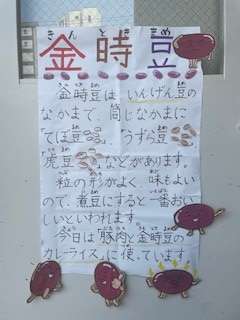 きんときまめ
金時豆
金時豆は いんげん豆の
なかまで、同じなかまに
「てぼ豆」「うずら豆
「虎豆」などがあります。
粒の形がよく、味もよい
ので、煮豆にすると一番おい
しいといわれます。
今日は「豚肉と金時豆の
カレーライス」に使っています。